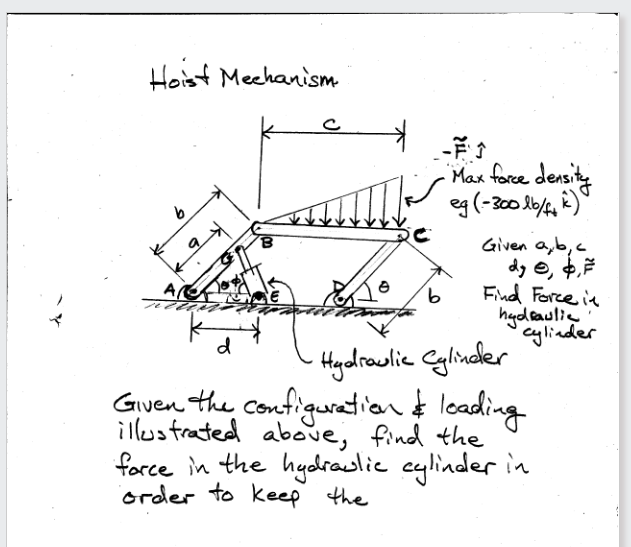 Hoist Mechanism
c
-F̃ ĵ
Max force density
eg (-300 lb/ft k̂)
b
a
B
C
G
Given a, b, c
d, θ, φ, F̃
Find Force in
hydraulic
cylinder
A
θ
φ
E
D
θ
b
d
Hydraulic Cylinder
Given the configuration & loading
illustrated above, find the
force in the hydraulic cylinder in
order to keep the